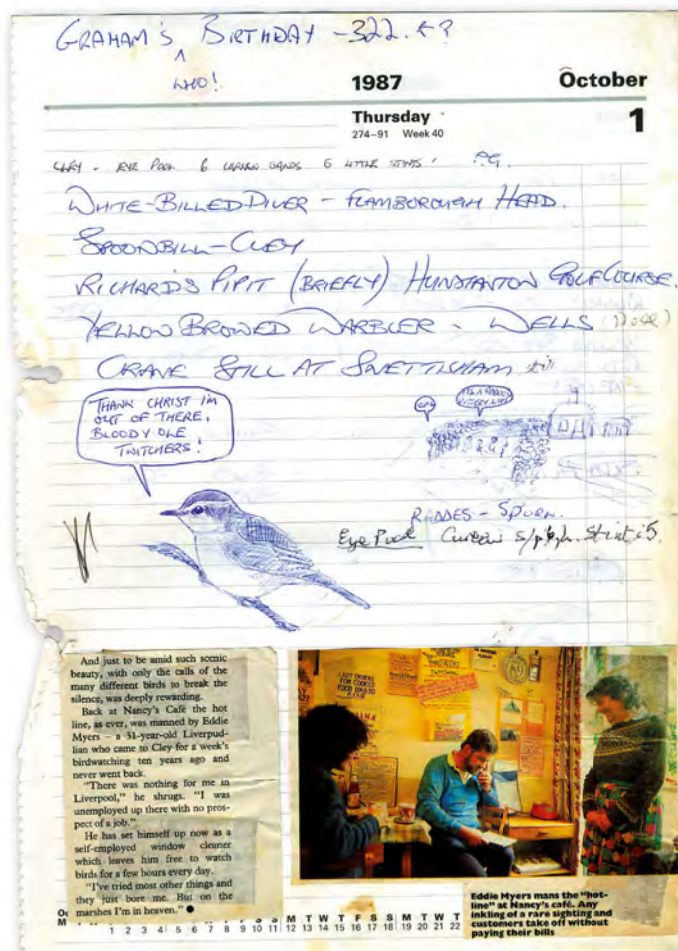 GRAHAM'S BIRTHDAY - 322. ← ?
^ WHO!
1987 October
Thursday 1
274–91 Week 40
CLEY - EYE POOL 6 CURLEW SANDS 6 LITTLE STINTS
WHITE-BILLED DIVER - FLAMBOROUGH HEAD.
SPOONBILL - CLEY
RICHARDS PIPIT (BRIEFLY) HUNSTANTON GOLF COURSE.
YELLOW BROWED WARBLER - WELLS
CRANE STILL AT SNETTISHAM
THANK CHRIST I'M
OUT OF THERE,
BLOODY OLE
TWITCHERS!
RADDES - SPURN.
Eye Pool Curlew s/p 6, L. Stint 5
And just to be amid such scenic
beauty, with only the calls of the
many different birds to break the
silence, was deeply rewarding.
Back at Nancy's Café the hot
line, as ever, was manned by Eddie
Myers – a 31-year-old Liverpud-
lian who came to Cley for a week's
birdwatching ten years ago and
never went back.
"There was nothing for me in
Liverpool," he shrugs. "I was
unemployed up there with no pros-
pect of a job."
He has set himself up now as a
self-employed window cleaner
which leaves him free to watch
birds for a few hours every day.
"I've tried most other things and
they just bore me. But on the
marshes I'm in heaven." ●
LAST ORDERS
FOR COOKED
FOOD
Eddie Myers mans the "hot-
line" at Nancy's café. Any
inkling of a rare sighting and
customers take off without
paying their bills
S S M T W T F S S M T W T
1 2 3 4 5 6 7 8 9 10 11 12 13 14 15 16 17 18 19 20 21 22